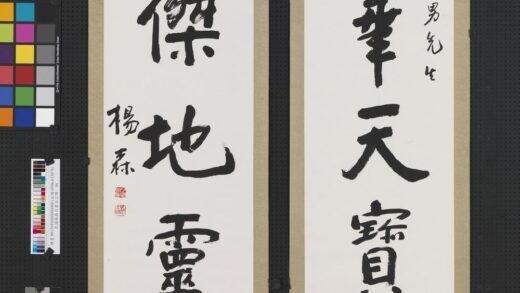 男先生
華天寶
傑地靈
楊森